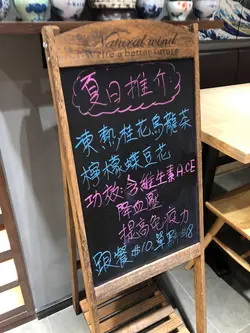 Natural wind
Write a better future
夏日推介:
凍熱桂花烏龍茶
檸檬綠豆花
功效:含維生素A.C.E
降血壓
提高免疫力
跟餐$10.單點$18